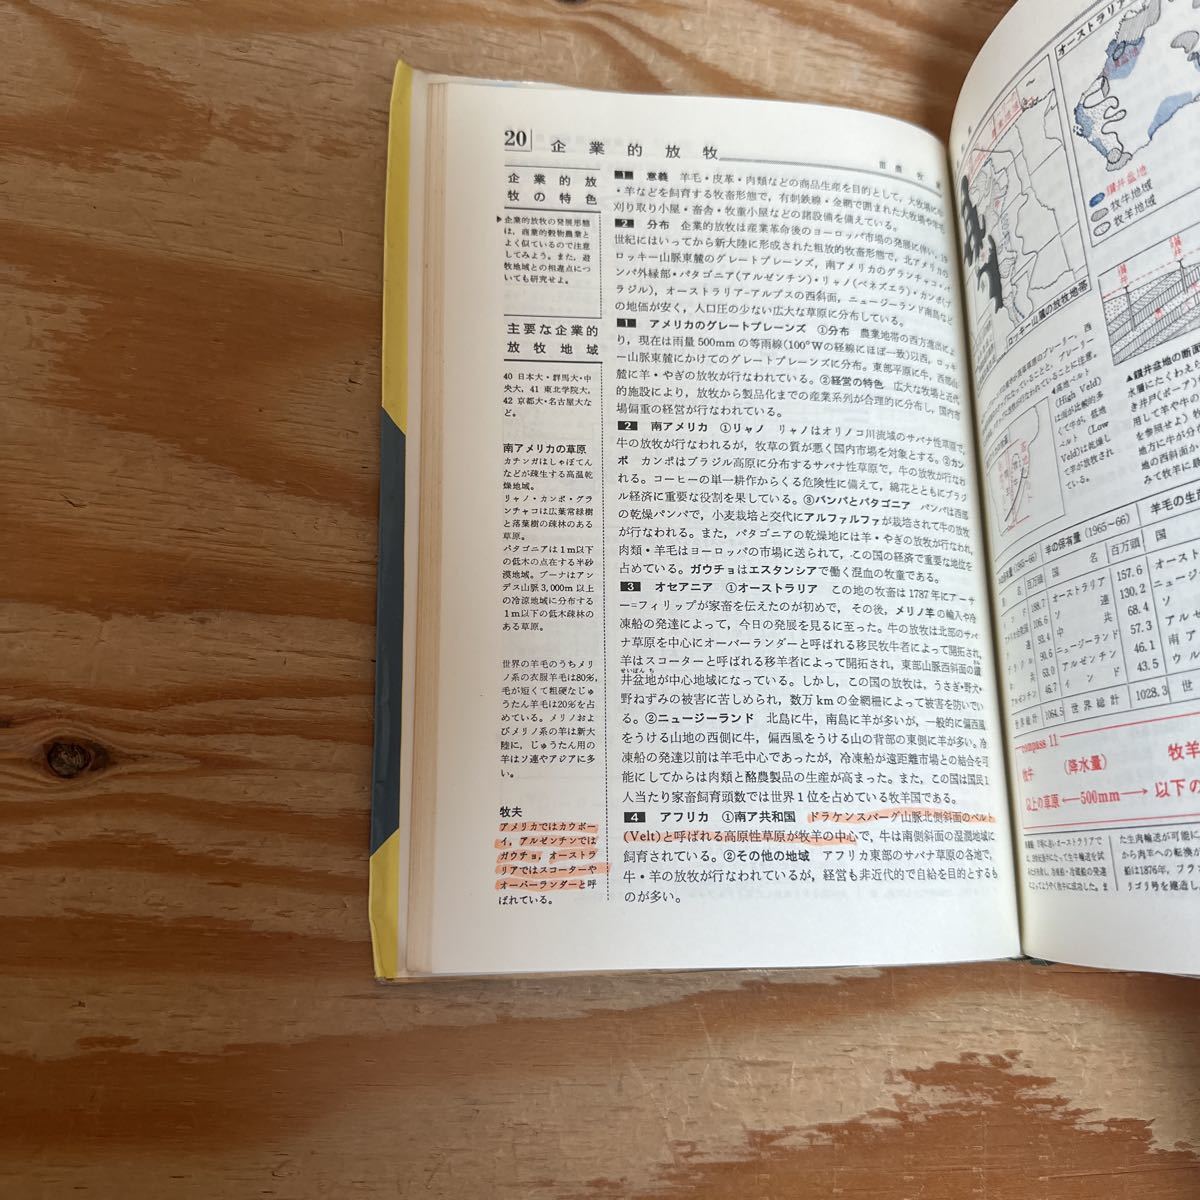 20 企業的放牧
企業的放
牧の特色
▶企業的放牧の発展形態
は、商業的穀物農業と
よく似ているので注意
してみよう。また、遊
牧地域との相違点につ
いても研究せよ。
主要な企業的
放牧地域
40 日本大・群馬大・中
央大, 41 東北学院大,
42 京都大・名古屋大な
ど。
南アメリカの草原
カチンガはしゃぼてん
などが疎生する高温乾
燥地域。
リャノ・カンポ・グラ
ンチャコは広葉常緑樹
と落葉樹の疎林のある
草原。
パタゴニアは1m以下
の低木の点在する半砂
漠地域。プーナはアン
デス山脈3,000m以上
の冷涼地域に分布する
1m以下の低木疎林の
ある草原。
世界の羊毛のうちメリ
ノ系の衣服羊毛は80%,
毛が短くて粗硬なじゅ
うたん羊毛は20%を占
めている。メリノおよ
びメリノ系の羊は新大
陸に、じゅうたん用の
羊はソ連やアジアに多
い。
牧夫
アメリカではカウボー
イ, アルゼンチンでは
ガウチョ, オーストラ
リアではスコーターや
オーバーランダーと呼
ばれている。
1 意義 羊毛・皮革・肉類などの商品生産を目的として, 大牧場に牛
・羊などを飼育する牧畜形態で, 有刺鉄線・金網で囲まれた大牧場や羊毛
刈り取り小屋・畜舎・牧童小屋などの諸設備を備えている。
2 分布 企業的放牧は産業革命後のヨーロッパ市場の発展に伴い, 19
世紀にはいってから新大陸に形成された粗放的牧畜形態で, 北アメリカの
ロッキー山脈東麓のグレートプレーンズ, 南アメリカのグランチャコ・パ
ンパ外縁部・パタゴニア(アルゼンチン)・リャノ(ベネズエラ)・カンポ(ブ
ラジル), オーストラリア-アルプスの西斜面, ニュージーランド南島など
の地価が安く, 人口圧の少ない広大な草原に分布している。
1 アメリカのグレートプレーンズ ①分布 農業地帯の西方進出によ
り, 現在は雨量500mmの等雨線(100°Wの経線にほぼ一致)以西, ロッキ
ー山脈東麓にかけてのグレートプレーンズに分布。東部平原に牛, 西部山
麓に羊・やぎの放牧が行なわれている。②経営の特色 広大な牧場と近代
的施設により, 放牧から製品化までの産業系列が合理的に分布し, 国内市
場偏重の経営が行なわれている。
2 南アメリカ ①リャノ リャノはオリノコ川流域のサバナ性草原で,
牛の放牧が行なわれるが, 牧草の質が悪く国内市場を対象とする。②カン
ポ カンポはブラジル高原に分布するサバナ性草原で, 牛の放牧が行なわ
れる。コーヒーの単一耕作からくる危険性に備えて, 綿花とともにブラジ
ル経済に重要な役割を果している。③パンパとパタゴニア パンパは西部
の乾燥パンパで, 小麦栽培と交代にアルファルファが栽培されて牛の放牧
が行なわれる。また, パタゴニアの乾燥地には羊・やぎの放牧が行なわれ,
肉類・羊毛はヨーロッパの市場に送られて, この国の経済で重要な地位を
占めている。ガウチョはエスタンシアで働く混血の牧童である。
3 オセアニア ①オーストラリア この地の牧畜は1787年にアーサ
ー=フィリップが家畜を伝えたのが初めで, その後, メリノ羊の輸入や冷
凍船の発達によって, 今日の発展を見るに至った。牛の放牧は北部のサバ
ナ草原を中心にオーバーランダーと呼ばれる移民牧牛者によって開拓され,
羊はスコーターと呼ばれる移羊者によって開拓され, 東部山脈西斜面の鑚
井盆地が中心地域になっている。しかし, この国の放牧は, うさぎ・野犬・
野ねずみの被害に苦しめられ, 数万kmの金網柵によって被害を防いでい
る。②ニュージーランド 北島に牛, 南島に羊が多いが, 一般的に偏西風
をうける山地の西側に牛, 偏西風をうける山の背部の東側に羊が多い。冷
凍船の発達以前は羊毛中心であったが, 冷凍船が遠距離市場との結合を可
能にしてからは肉類と酪農製品の生産が高まった。また, この国は国民1
人当たり家畜飼育頭数では世界1位を占めている牧羊国である。
4 アフリカ ①南ア共和国 ドラケンスバーグ山脈北側斜面のベルト
(Velt)と呼ばれる高原性草原が牧羊の中心で, 牛は南側斜面の湿潤地域に
飼育されている。②その他の地域 アフリカ東部のサバナ草原の各地で,
牛・羊の放牧が行なわれているが, 経営も非近代的で自給を目的とするも
のが多い。
オーストラリア
鑚井盆地
牧牛地域
牧羊地域
ロッキー山麓の放牧地帯
▲鑚井盆地の断面
(High Veld)
羊の保有量 (1965~66)
国 名 百万頭
オーストラリア 157.6
ソ 連 130.2
中 共 68.4
ニュージーランド 57.3
アルゼンチン 46.1
インド 43.5
世界総計 1028.3
羊毛の生産
compass 11
牧牛 (降水量) 牧羊
以上の草原 ←500mm→ 以下の